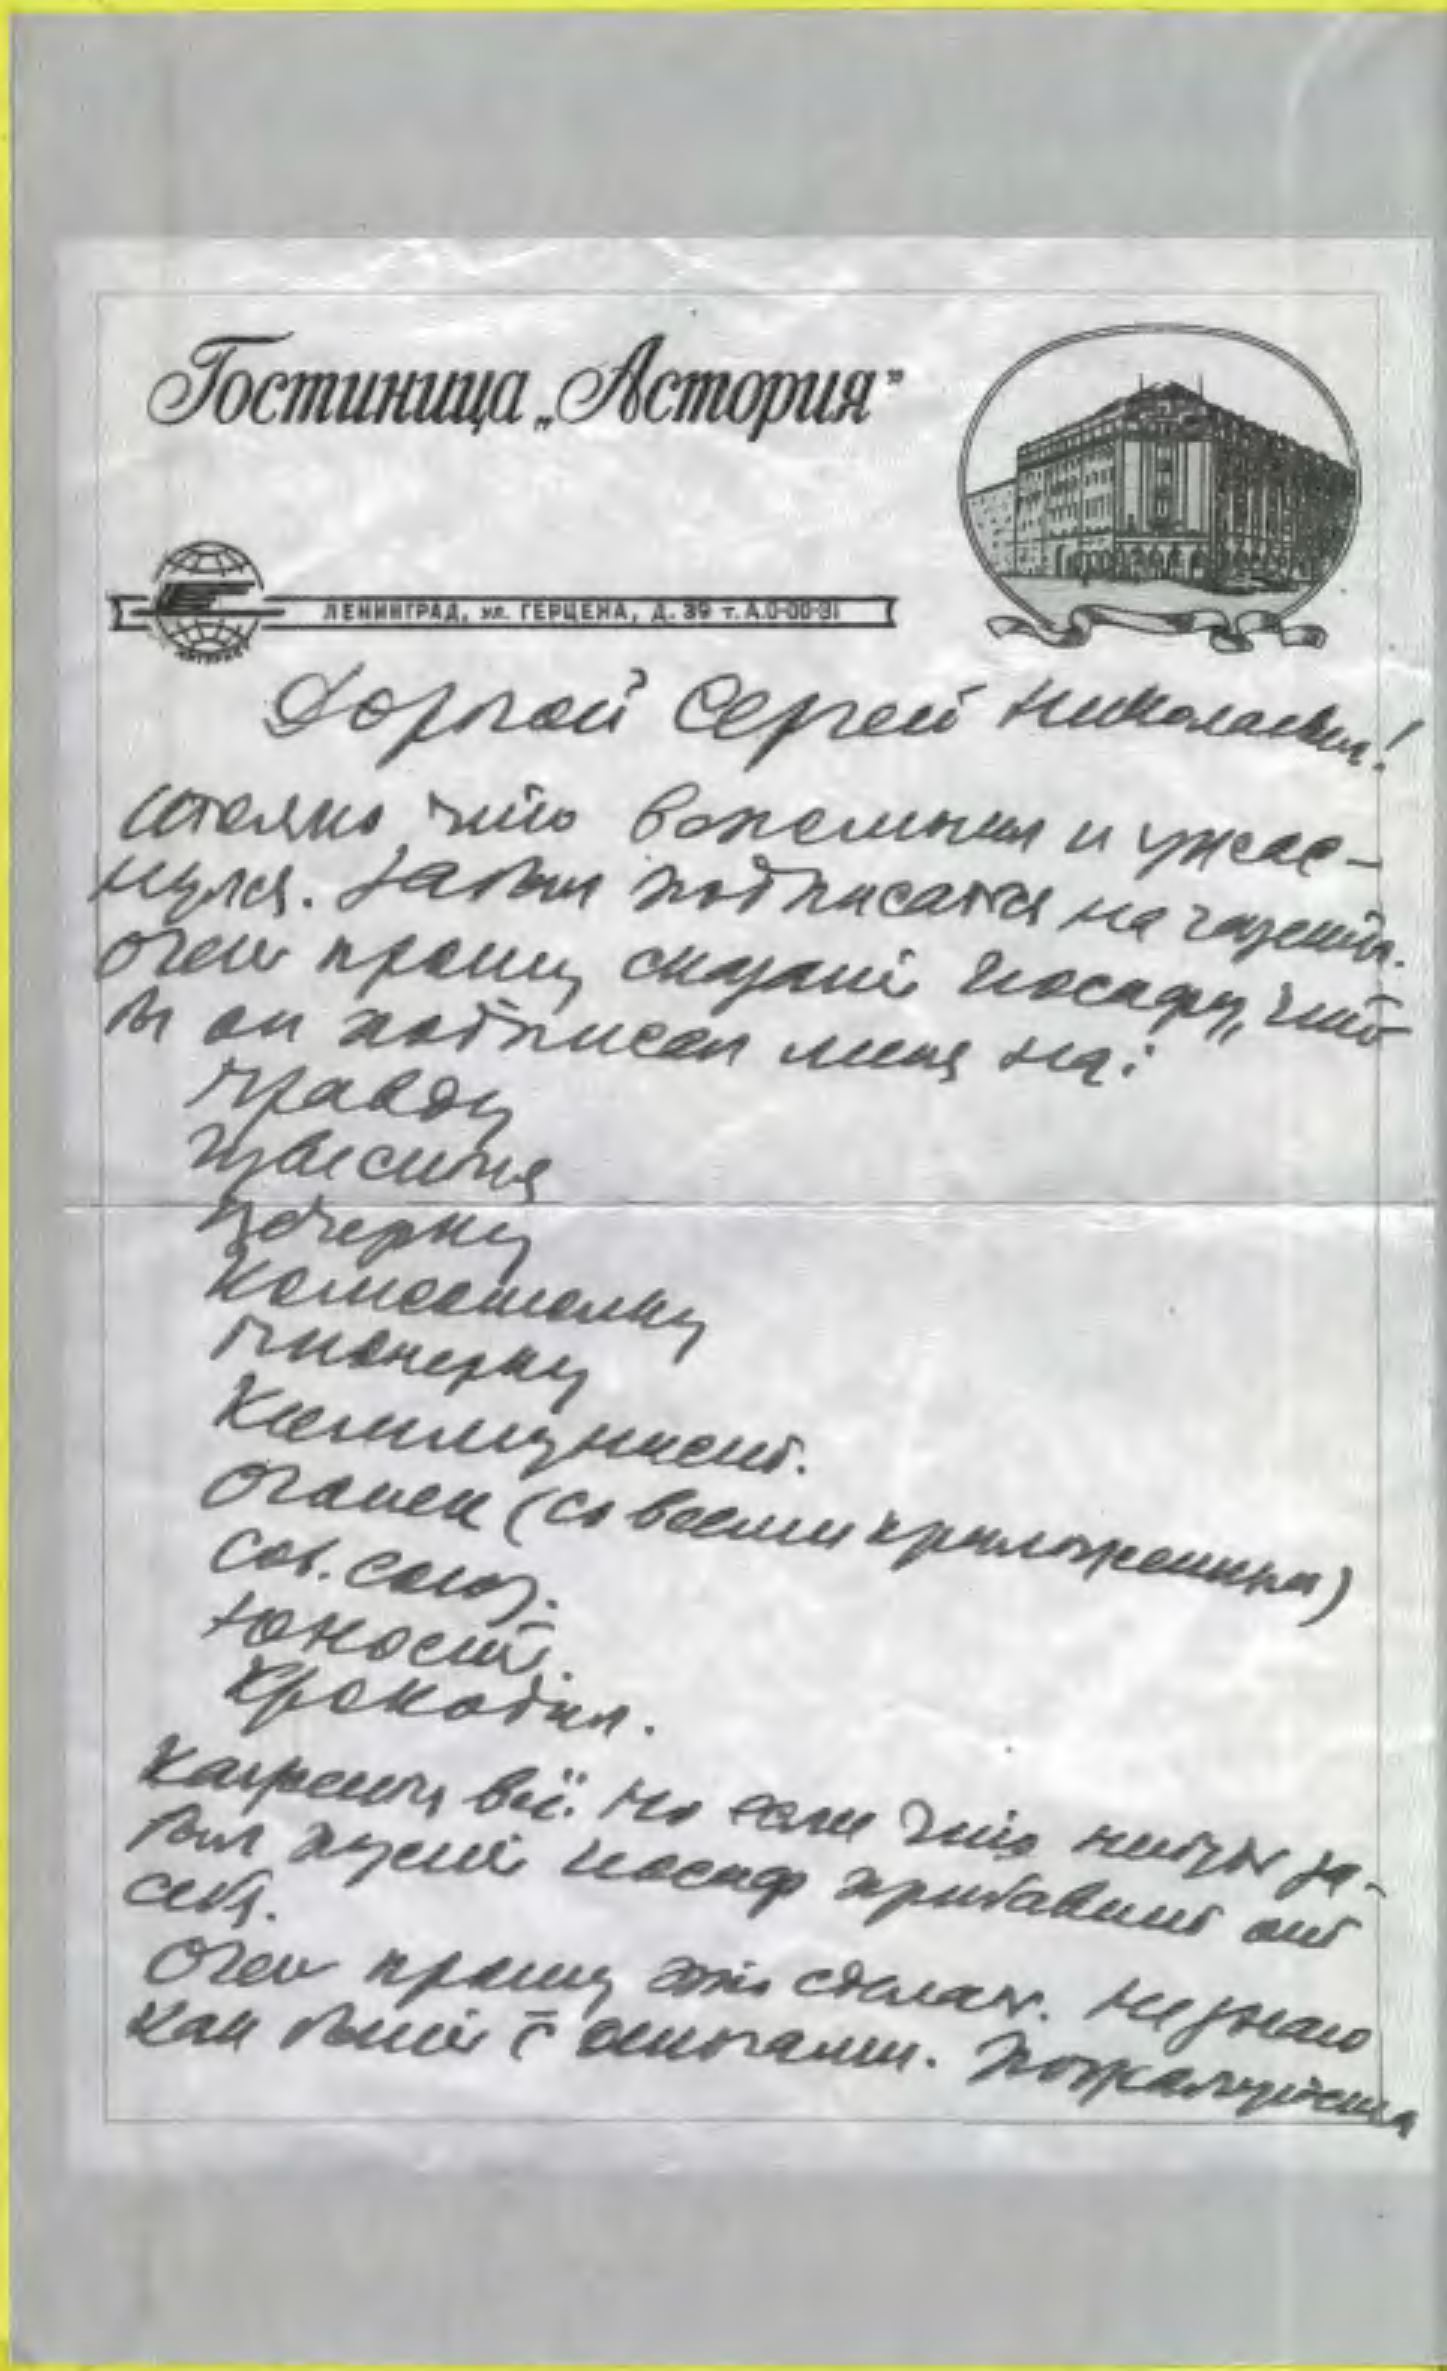 Гостиница „Астория”
ЛЕНИНГРАД, ул. ГЕРЦЕНА, Д. 39 т. А.0-00-31
АСТОРИЯ
Дорогой Сергей Николаевич!
только что вспомнил и ужас-
нулся. Забыл подписаться на газеты.
Очень прошу сказать Иосифу, что
бы он подписал меня на:
Правду
Известия
Вечерку
Комсомолку
Пионерку
Коммунист.
Огонек (со всеми приложениями)
Сов. союз.
Юность.
Крокодил.
Кажется всё. Но если что нибудь за-
был пусть Иосиф прибавит от
себя.
Очень прошу это сделать. Не знаю
как быть с деньгами. Пожалуйста